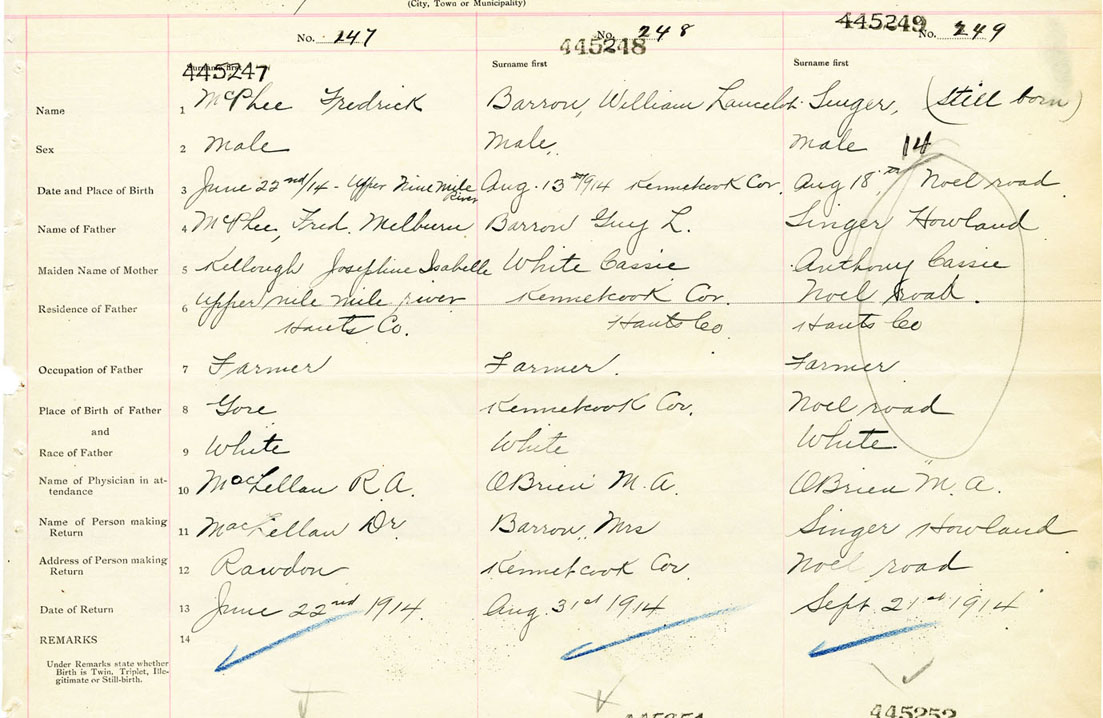 (City, Town or Municipality)
No. 247 No. 248 No. 249
445247 445248 445249
Surname first Surname first Surname first
Name 1 McPhee Fredrick Barron, William Lancelot Singer, (Still born)
Sex 2 Male Male. Male
14
Date and Place of Birth 3 June 22nd/14 - Upper Nine Mile River Aug. 13th 1914 Kennetcook Cor. Aug 18, Noel road
Name of Father 4 McPhee, Fred. Melburn Barron Guy L. Singer Howland
Maiden Name of Mother 5 Kellough Josephine Isabelle White Cassie Anthony Cassie
Residence of Father 6 Upper nile mile river Kennetcook Cor. Noel road.
Hants Co. Hants Co Hants Co
Occupation of Father 7 Farmer Farmer. Farmer
Place of Birth of Father 8 Gore Kennetcook Cor. Noel road
and
Race of Father 9 White White White
Name of Physician in at-
tendance 10 MacLellan R.A. OBrien M.A. OBrien M.A.
Name of Person making
Return 11 MacLellan Dr Barron, Mrs Singer Howland
Address of Person making
Return 12 Rawdon Kennetcook Cor Noel road
Date of Return 13 June 22nd 1914. Aug. 31st 1914 Sept. 21st 1914
REMARKS 14
Under Remarks state whether
Birth is Twin, Triplet, Ille-
gitimate or Still-birth.
445252